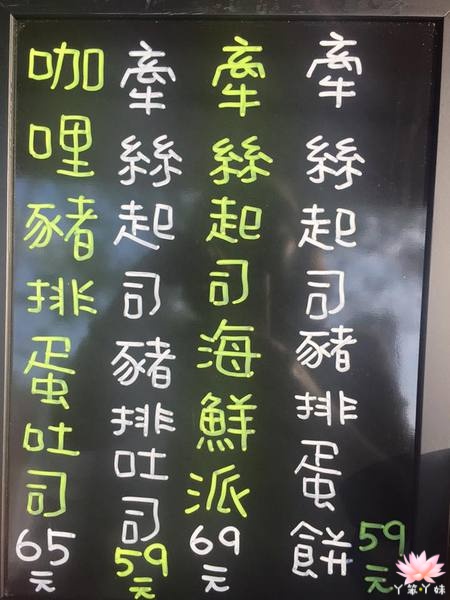 牽絲起司豬排蛋餅 59元
牽絲起司海鮮派 69元
牽絲起司豬排吐司 59元
咖哩豬排蛋吐司 65元
ㄚ笨ㄚ妹